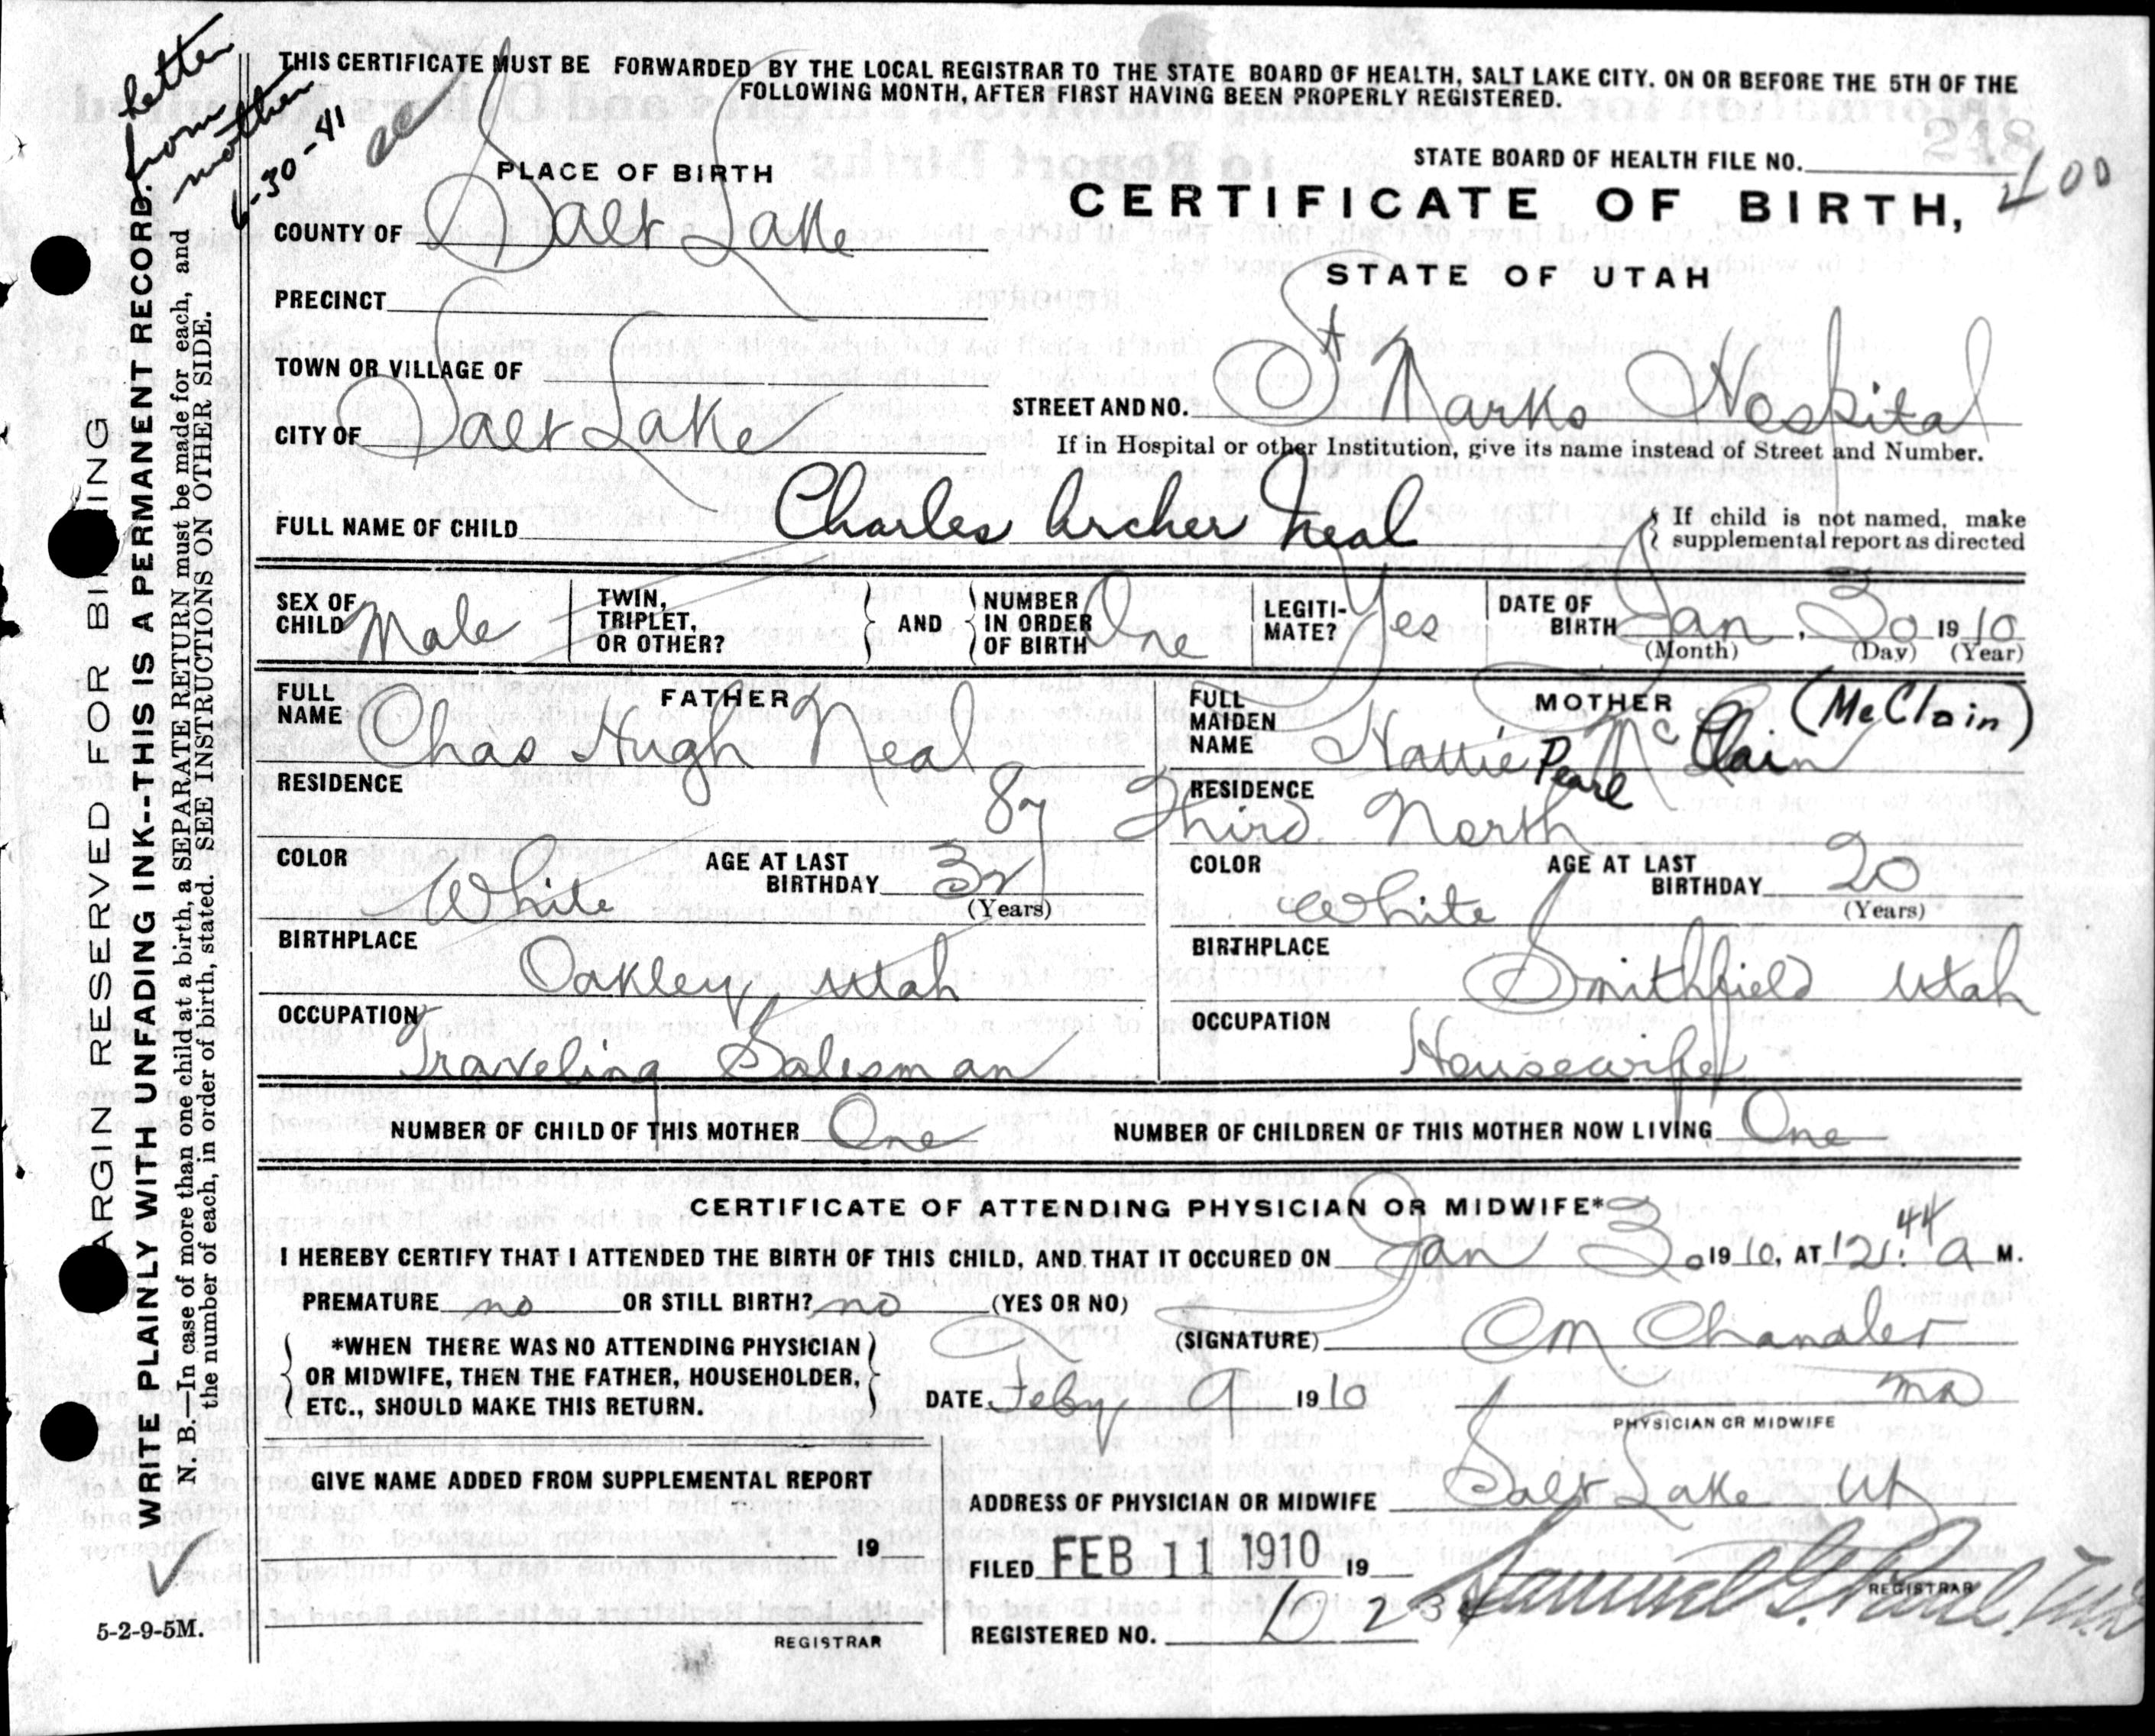 letter
from
mother
6-30-41
THIS CERTIFICATE MUST BE FORWARDED BY THE LOCAL REGISTRAR TO THE STATE BOARD OF HEALTH, SALT LAKE CITY, ON OR BEFORE THE 5TH OF THE
FOLLOWING MONTH, AFTER FIRST HAVING BEEN PROPERLY REGISTERED.
STATE BOARD OF HEALTH FILE NO.
218
400
PLACE OF BIRTH
CERTIFICATE OF BIRTH,
STATE OF UTAH
COUNTY OF Salt Lake
PRECINCT
TOWN OR VILLAGE OF
CITY OF Salt Lake
STREET AND NO. St Marks Hospital
If in Hospital or other Institution, give its name instead of Street and Number.
FULL NAME OF CHILD Charles Archer Neal
If child is not named, make
supplemental report as directed
SEX OF CHILD Male
TWIN, TRIPLET, OR OTHER?
AND
NUMBER IN ORDER OF BIRTH One
LEGITI-MATE? Yes
DATE OF BIRTH Jan, 30 1910
(Month) (Day) (Year)
FATHER
FULL NAME Chas Hugh Neal
MOTHER
FULL MAIDEN NAME Hattie Pearl McClain (McClain)
RESIDENCE
RESIDENCE
87 Third North
COLOR White
AGE AT LAST BIRTHDAY 32
(Years)
COLOR White
AGE AT LAST BIRTHDAY 20
(Years)
BIRTHPLACE
Oakley, Utah
BIRTHPLACE
Smithfield Utah
OCCUPATION
Traveling Salesman
OCCUPATION
Housewife
NUMBER OF CHILD OF THIS MOTHER One
NUMBER OF CHILDREN OF THIS MOTHER NOW LIVING One
CERTIFICATE OF ATTENDING PHYSICIAN OR MIDWIFE*
I HEREBY CERTIFY THAT I ATTENDED THE BIRTH OF THIS CHILD, AND THAT IT OCCURED ON Jan 30 1910, AT 12:44 a M.
PREMATURE no OR STILL BIRTH? no (YES OR NO)
*WHEN THERE WAS NO ATTENDING PHYSICIAN
OR MIDWIFE, THEN THE FATHER, HOUSEHOLDER,
ETC., SHOULD MAKE THIS RETURN.
(SIGNATURE) CM Chandler
MD
PHYSICIAN OR MIDWIFE
DATE Feby 9 1910
GIVE NAME ADDED FROM SUPPLEMENTAL REPORT
19
REGISTRAR
ADDRESS OF PHYSICIAN OR MIDWIFE Salt Lake Ut
FILED FEB 11 1910 19
REGISTRAR
REGISTERED NO.
MARGIN RESERVED FOR BINDING
WRITE PLAINLY WITH UNFADING INK--THIS IS A PERMANENT RECORD.
N. B.—In case of more than one child at a birth, a SEPARATE RETURN must be made for each, and
the number of each, in order of birth, stated. SEE INSTRUCTIONS ON OTHER SIDE.
5-2-9-5M.